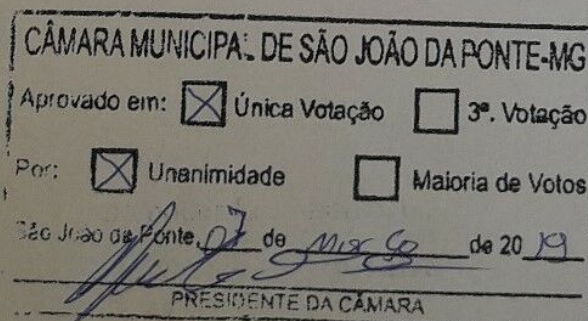 CÂMARA MUNICIPAL DE SÃO JOÃO DA PONTE-MG
Aprovado em: Única Votação 3ª. Votação
Por: Unanimidade Maioria de Votos
São João da Ponte, 07 de Março de 2019
PRESIDENTE DA CÂMARA